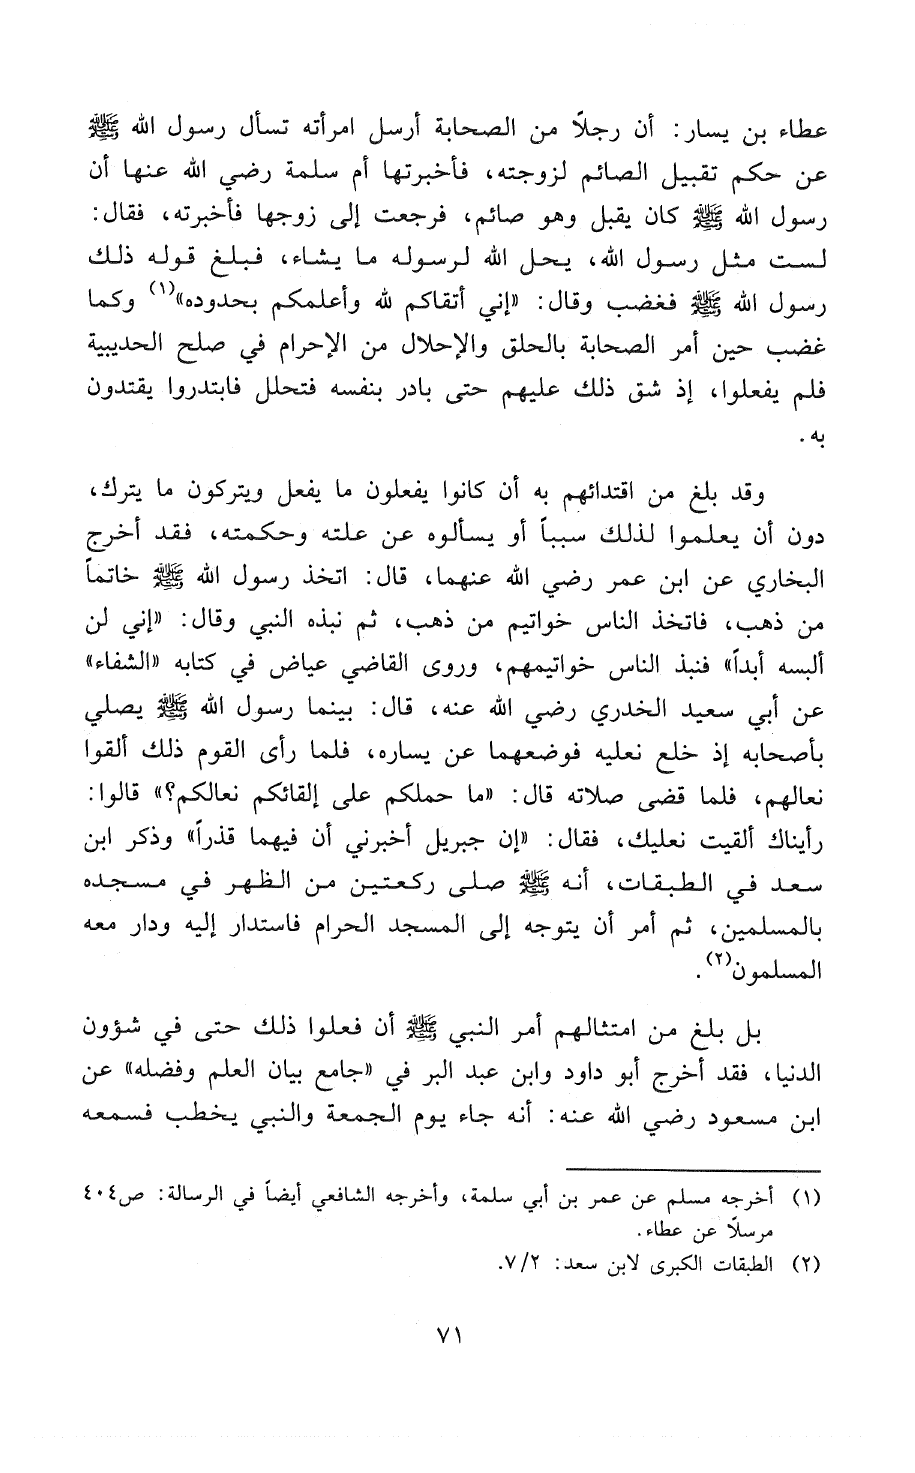 عطاء بن يسار: أن رجلاً من الصحابة أرسل امرأته تسأل رسول الله ﷺ
عن حكم تقبيل الصائم لزوجته، فأخبرتها أم سلمة رضي الله عنها أن
رسول الله ﷺ كان يقبل وهو صائم، فرجعت إلى زوجها فأخبرته، فقال:
لست مثل رسول الله، يحل الله لرسوله ما يشاء، فبلغ قوله ذلك
رسول الله ﷺ فغضب وقال: «إني أتقاكم لله وأعلمكم بحدوده»(١) وكما
غضب حين أمر الصحابة بالحلق والإحلال من الإحرام في صلح الحديبية
فلم يفعلوا، إذ شق ذلك عليهم حتى بادر بنفسه فتحلل فابتدروا يقتدون
به.
وقد بلغ من اقتدائهم به أن كانوا يفعلون ما يفعل ويتركون ما يترك،
دون أن يعلموا لذلك سبباً أو يسألوه عن علته وحكمته، فقد أخرج
البخاري عن ابن عمر رضي الله عنهما، قال: اتخذ رسول الله ﷺ خاتماً
من ذهب، فاتخذ الناس خواتيم من ذهب، ثم نبذه النبي وقال: «إني لن
ألبسه أبداً» فنبذ الناس خواتيمهم، وروى القاضي عياض في كتابه «الشفاء»
عن أبي سعيد الخدري رضي الله عنه، قال: بينما رسول الله ﷺ يصلي
بأصحابه إذ خلع نعليه فوضعهما عن يساره، فلما رأى القوم ذلك ألقوا
نعالهم، فلما قضى صلاته قال: «ما حملكم على إلقائكم نعالكم؟» قالوا:
رأيناك ألقيت نعليك، فقال: «إن جبريل أخبرني أن فيهما قذراً» وذكر ابن
سعد في الطبقات، أنه ﷺ صلى ركعتين من الظهر في مسجده
بالمسلمين، ثم أمر أن يتوجه إلى المسجد الحرام فاستدار إليه ودار معه
المسلمون(٢).
بل بلغ من امتثالهم أمر النبي ﷺ أن فعلوا ذلك حتى في شؤون
الدنيا، فقد أخرج أبو داود وابن عبد البر في «جامع بيان العلم وفضله» عن
ابن مسعود رضي الله عنه: أنه جاء يوم الجمعة والنبي يخطب فسمعه
(١) أخرجه مسلم عن عمر بن أبي سلمة، وأخرجه الشافعي أيضاً في الرسالة: ص٤٠٤
مرسلاً عن عطاء.
(٢) الطبقات الكبرى لابن سعد: ٧/٢.
٧١